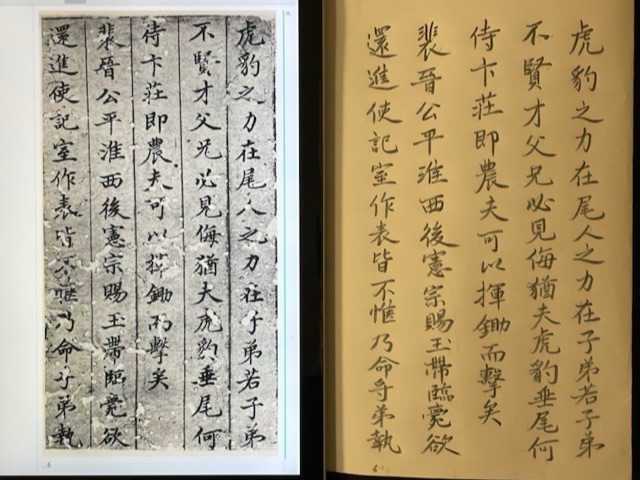 虎豹之力在尾人之力在子弟若子弟
不賢才父兄必見侮猶夫虎豹垂尾何
待卞莊即農夫可以揮鋤而擊矣
裴晉公平淮西後憲宗賜玉帶臨薨欲
還進使記室作表皆不惬乃命子弟執
虎豹之力在尾人之力在子弟若子弟
不賢才父兄必見侮猶夫虎豹垂尾何
待卞莊即農夫可以揮鋤而擊矣
裴晉公平淮西後憲宗賜玉帶臨薨欲
還進使記室作表皆不惟乃命子弟執